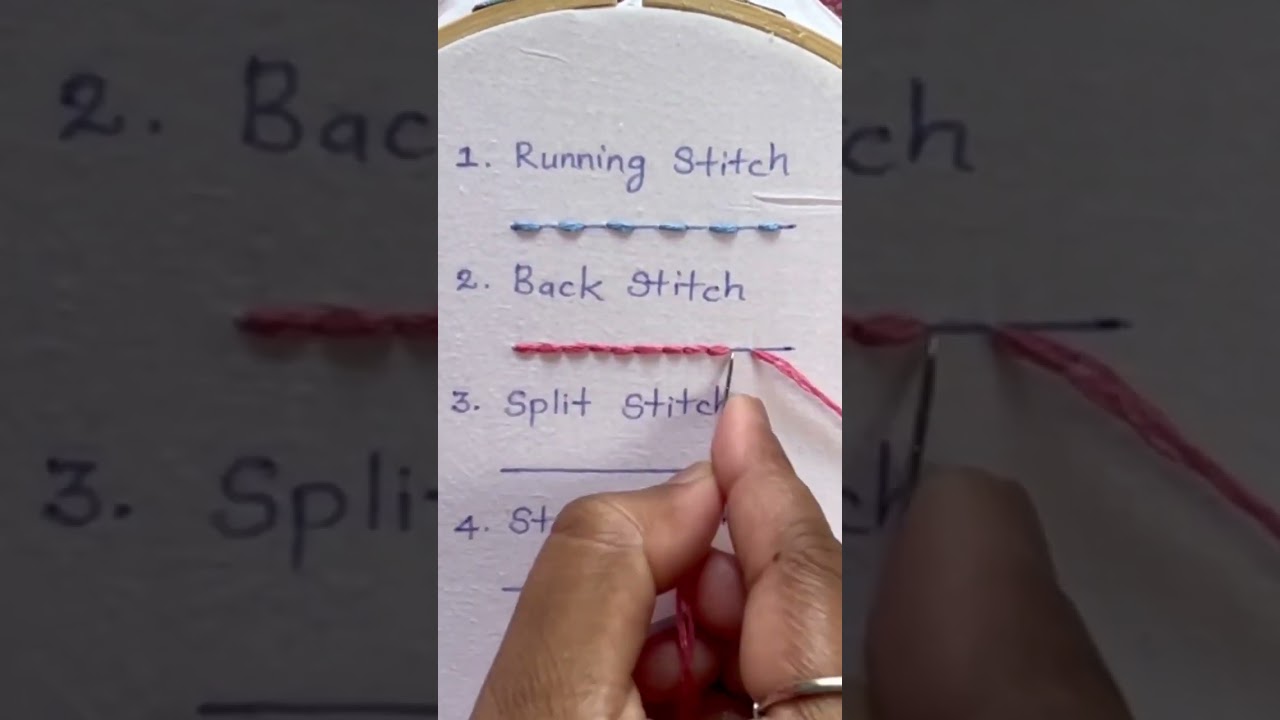 1. Running Stitch
2. Back Stitch
3. Split Stitch
4.